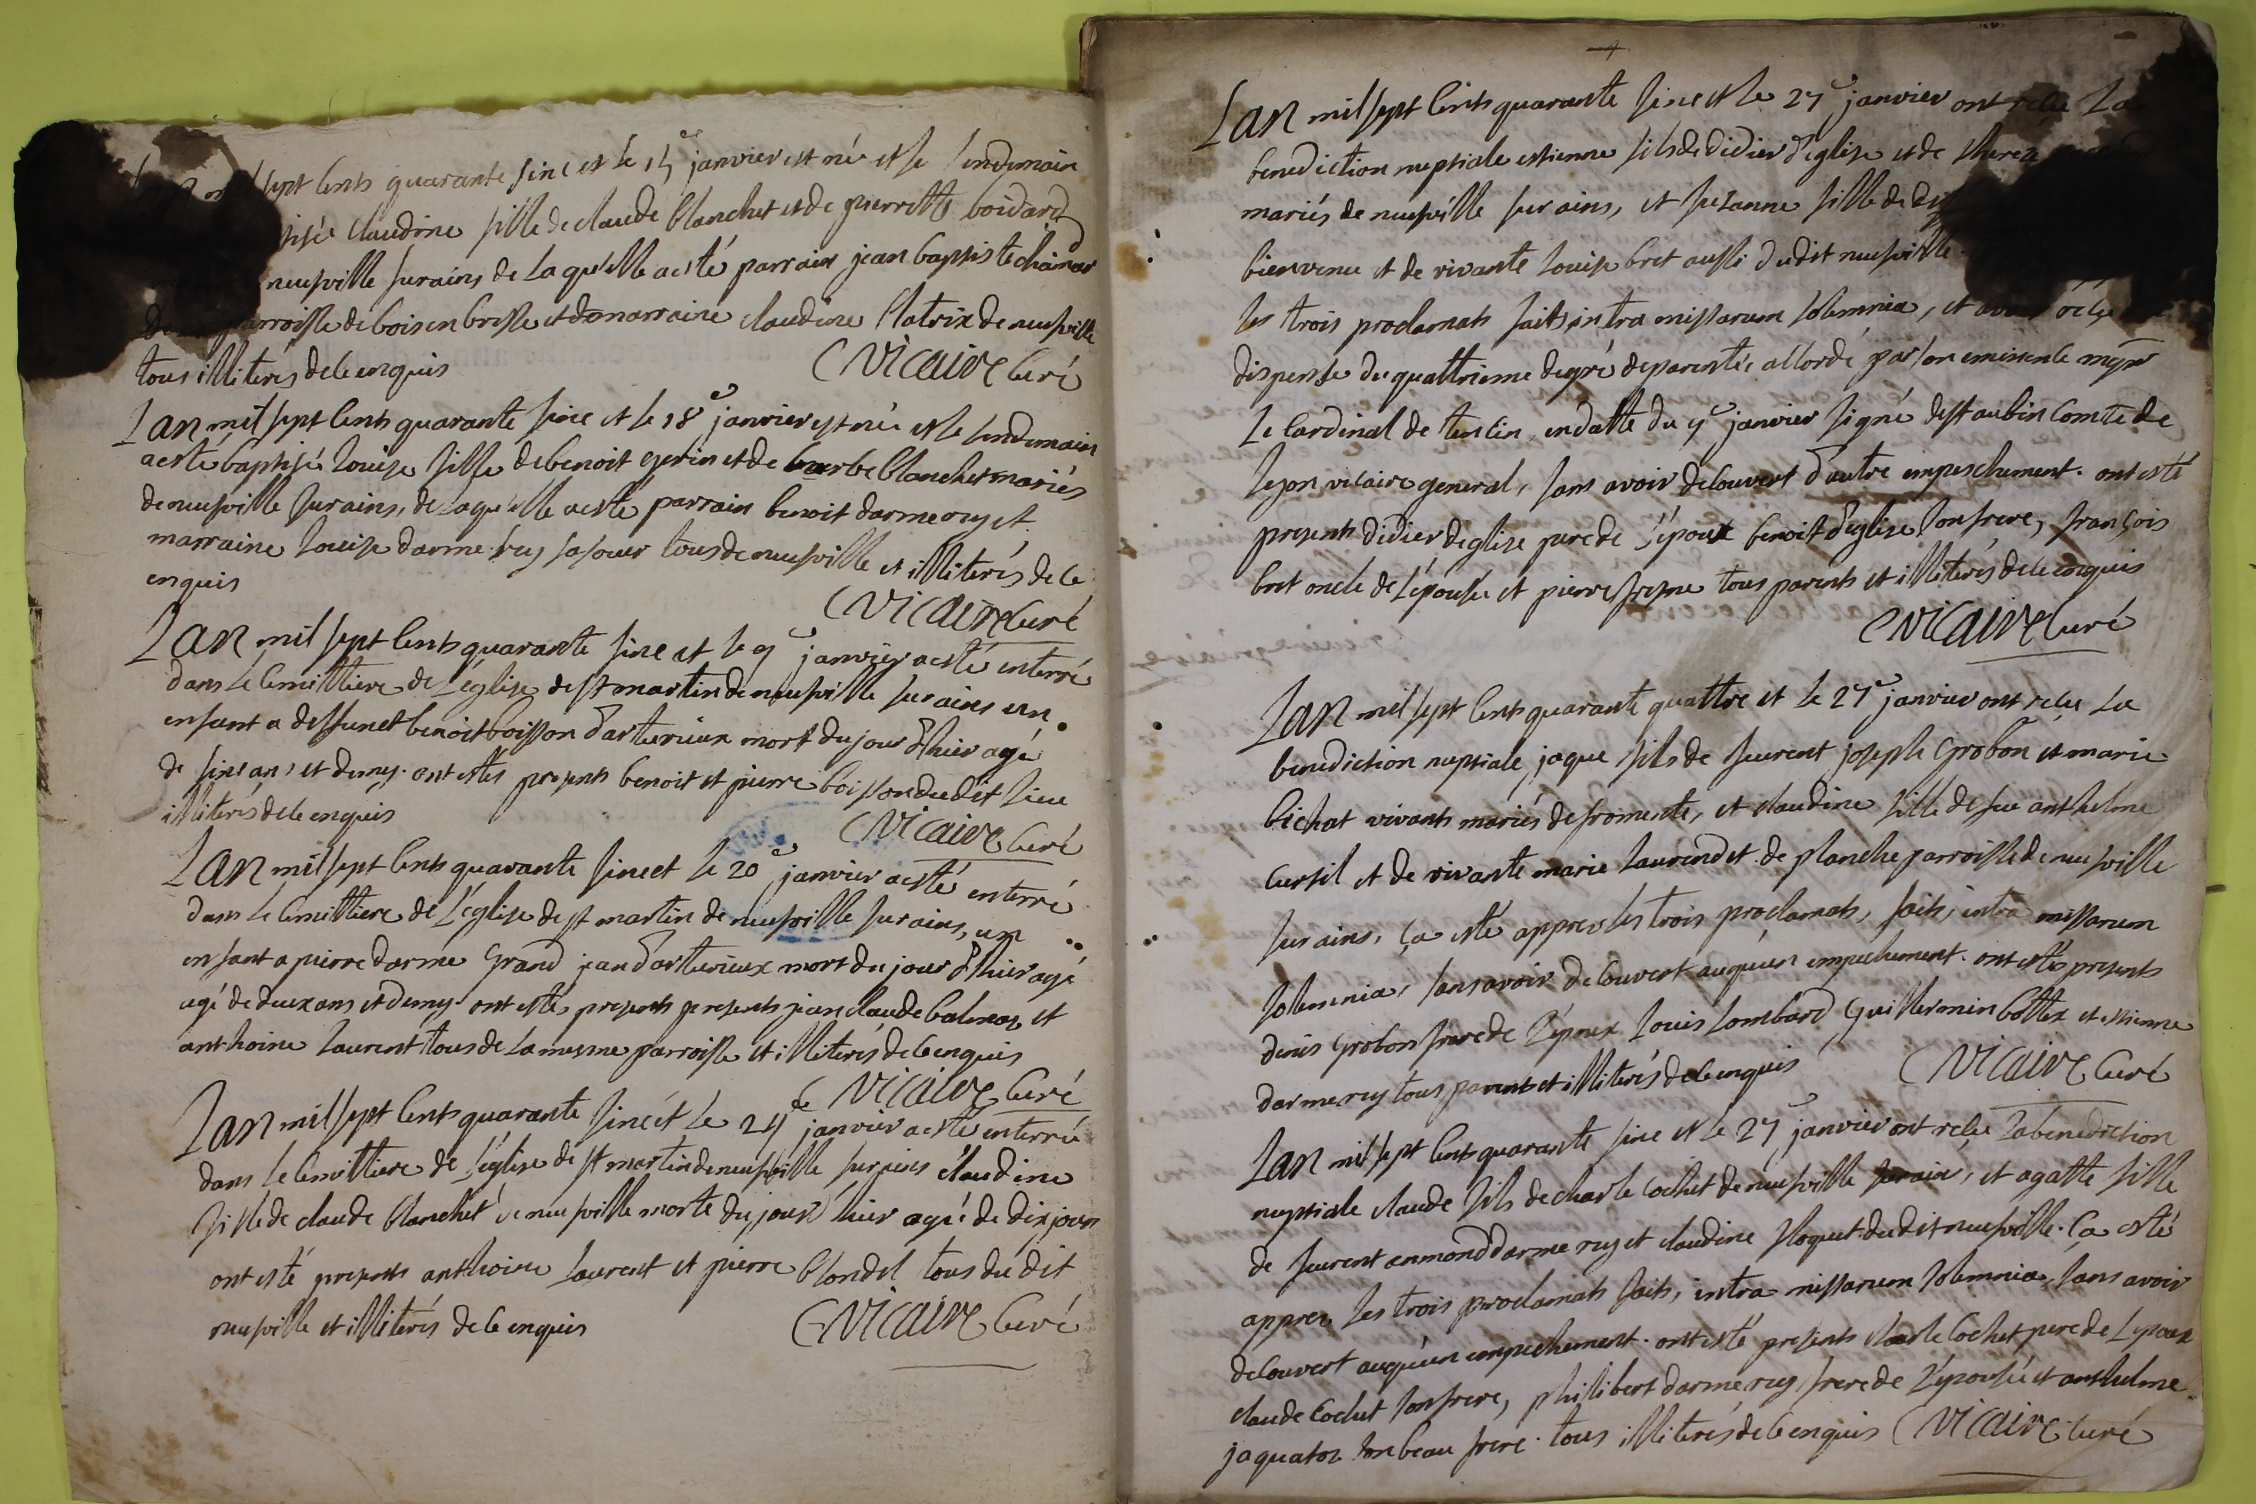 sept cents quarante sinc et le 15e janvier est née et le lendemain
tisée claudine fille de claude blanchet et de pierrette boidard
neufville sur ains de la qu'elle a esté parrain jean baptiste chainard
parroisse de bois en bresse et de marraine claudine Clatrix de neufville
tous illiterés de ce enquis VICAIRE Curé
Lan mil sept cents quarante sinc et le 18e janvier est née et le lendemain
a esté baptisée Louise fille de benoit gerin et de barbe blanchet mariés
de neufville sur ains, de la qu'elle a esté parrain benoit darmerey et
marraine Louise darmerey sa soeur tous de neufville et illiterés de ce
enquis VICAIRE Curé
Lan mil sept cents quarante sinc et le 9e janvier a esté interré
dans le cemittiere de L'église de st martin de neufville sur ains un
enfant a deffunct benoit boisson d'arturieux mort du jour d'hier agé
de sinc ans et demy. ont estés presents benoit et pierre boisson dudit lieu
illiterés de ce enquis VICAIRE Curé
Lan mil sept cents quarante sinc et le 20e janvier a esté enterré
dans le Cemittiere de L'église de st martin de neufville sur ains, un
enfant a pierre darme Grand jean d'arturieux mort du jour d'hier agé
agé de deux ans et demy. ont estés presents presents jean claude balmon et
anthoine Laurent tous de la mesme parroisse et illiterés de ce enquis
VICAIRE Curé
Lan mil sept cents quarante sinc et le 24e janvier a esté enterrée
dans le Cemittiere de L'église de st martin de neufville sur ains claudine
fille de claude blanchet de neufville morte du jour hier agée de dix jours
ont esté presents anthoine Laurent et pierre blondel tous du dit
neufville et illiterés de ce enquis VICAIRE Curé
4
Lan mil sept cents quarante sinc et le 27e janvier ont reçu La
benediction nuptiale estienne fils de didier d'eglise et de thereze
mariés de neufville sur ains, et suzanne fille de
bienvenu et de vivante Louise bret aussi dudit neufville
les trois proclamats faits intra missarum solemnia, et avoir reçu
dispense du quattrieme degré de parentée accordé par son eminence mgnr
Le Cardinal de tencin en datte du 9e janvier signé de st aubin Comte de
Lyon vicaire general, sans avoir decouvert d'autre empeschement. ont esté
presents didier deglise pere de L'époux benoit d'eglise son frere, françois
bret oncle de L'épousée et pierre fresne tous parents et illiterés de ce enquis
VICAIRE Curé
Lan mil sept cents quarante quattre et le 27e janvier ont reçu La
benediction nuptiale jaque fils de feurent joseph Grobon et marie
bichat vivants mariés de fromente, et claudine fille de feu anthelme
Cursil et de vivante marie Laurendet de planche parroisse de neufville
sur ains, ça esté appres les trois proclamats, faits, intra missarum
solemnia, sans avoir decouvert auqu'un empechement. ont estés presents
denis Grobon frere de L'époux Louis Lombard Guillermin bottex et estienne
darmerey tous parents et illiterés de ce enquis VICAIRE Curé
Lan mil sept cents quarante sinc et le 27e janvier ont reçu La benediction
nuptiale claude fils de charle Cochet de neufville sur ain, et agatte fille
de feurent anmond darmerey et claudine floquet dudit neufville. ça esté
appres les trois proclamats faits, intra missarum solemnia, sans avoir
decouvert auqu'un empechement. ont esté presents charle Cochet pere de L'epoux
claude Cochet son frere, philibert darmerey frere de L'épousée et anthelme
jaquaton son beau frere. tous illiterés de ce enquis VICAIRE Curé